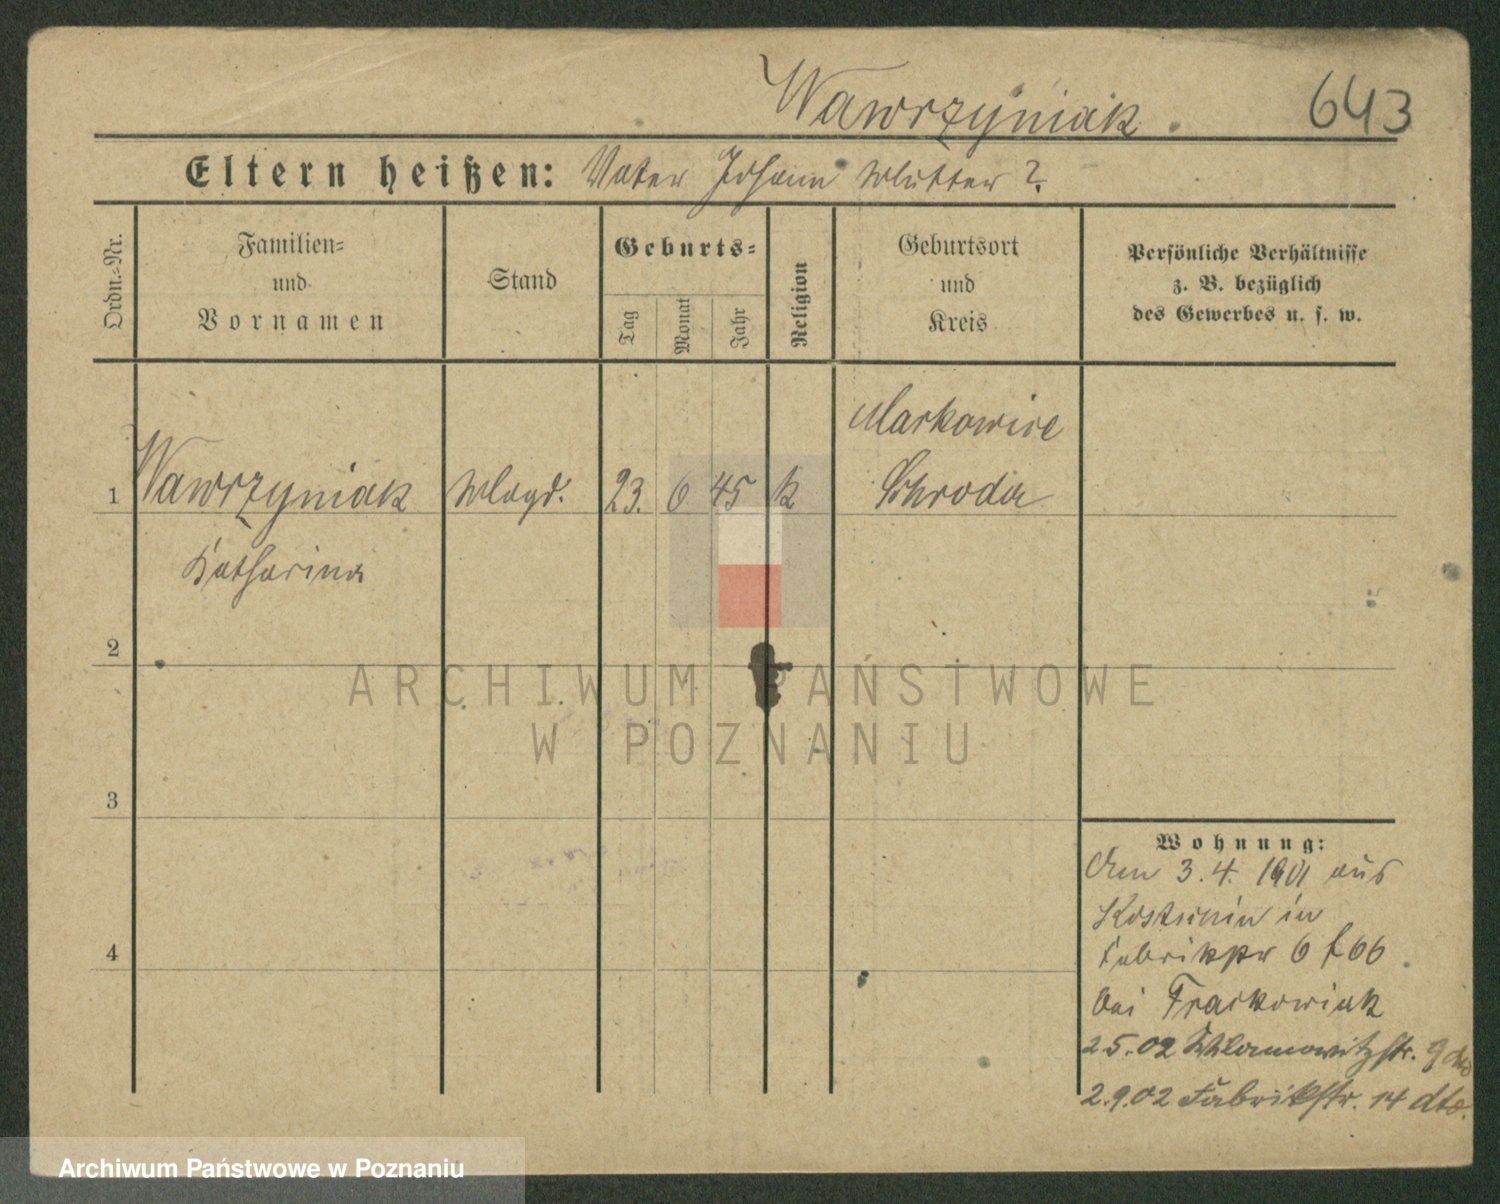 Wawrzyniak 643
Eltern heißen: Vater Johann Mutter ?
Ordn.=Nr.
Familien=
und
Vornamen
Stand
Geburts=
Tag
Monat
Jahr
Religion
Geburtsort
und
Kreis
Persönliche Verhältnisse
z. B. bezüglich
des Gewerbes u. s. w.
Markowice
1 Wawrzyniak Magd. 23. 6 45 k Schroda
Katharina
2
3
4
Wohnung:
Am 3. 4. 1901 aus
Kostschin in
6 66
bei Frackowiak
2.5.02 9 dto
2.9.02 Fabrikstr. 14 dto.
ARCHIWUM PAŃSTWOWE
W POZNANIU
Archiwum Państwowe w Poznaniu